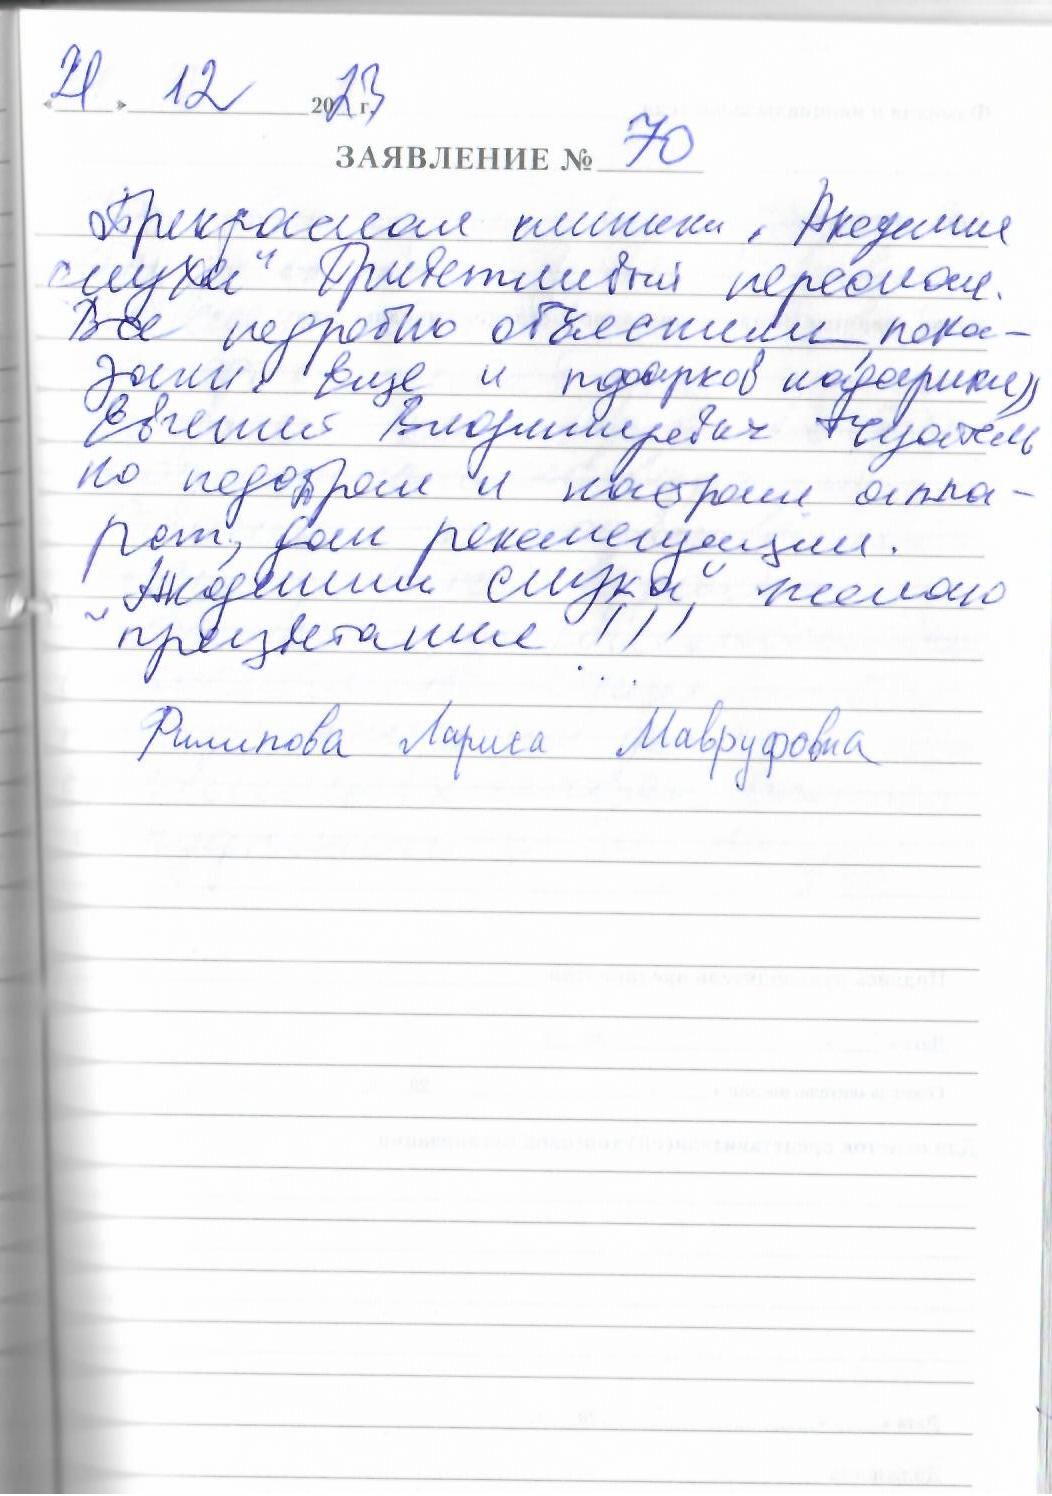 «21» 12 2023 г.
ЗАЯВЛЕНИЕ № 70
Прекрасная клиника "Академия
слуха" Приветливый персонал.
Все подробно объяснили, пока-
зали. Еще и подарков надарили))
Евгений Владимирович тщатель
но подобрал и настроил аппа-
рат, дал рекомендации.
"Академии слуха" желаю
процветания!!!
Филипова Лариса Мавруфовна